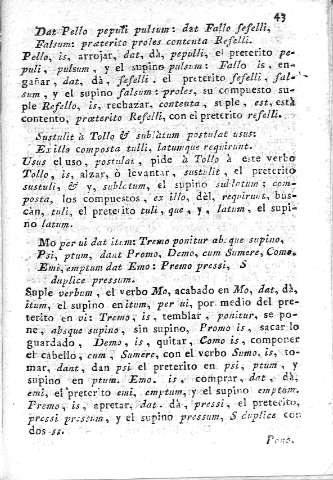 43
Dat Pello pepuli pulsum: dat Fallo fefelli,
Falsum: præterito proles contenta Refelli.
Pello, is, arrojar, dat, dà, pepulli, el preterito pe-
puli, pulsum, y el supino pulsum: Fallo is, en-
gañar, dat, dà, fefelli, el preterito fefelli, fal-
sum, y el supino falsum: proles, su compuesto su-
ple Refello, is, rechazar, contenta, suple, est, està
contento, præterito Refelli, con el preterito refelli.
Sustulit à Tollo & sublatum postulat usus:
Ex illo composta tulli, latumque requirunt.
Usus el uso, postulat, pide à Tollo à este verbo
Tollo, is, alzar, ò levantar, sustulit, el preterito
sustuli, & y, sublatum, el supino sublatum; com-
posta, los compuestos, ex illo, dèl, requirunt, bus-
càn, tuli, el preterito tuli, que, y, latum, el supi-
no latum.
Mo per ui dat itum: Tremo ponitur absque supino,
Psi, ptum, dant Promo, Demo, cum Sumere, Como.
Emi, emptum dat Emo: Premo pressi, S
duplice pressum.
Suple verbum, el verbo Mo, acabado en Mo, dat, dà,
itum, el supino en itum, per ui, por medio del pre-
terito en ui: Tremo, is, temblar, ponitur, se po-
ne, absque supino, sin supino, Promo is, sacar lo
guardado, Demo, is, quitar, Como is, componer
el cabello, cum, Sumere, con el verbo Sumo, is, to-
mar, dant, dan psi el preterito en psi, ptum, y
supino en ptum. Emo. is. comprar, dat, dà,
emi, el preterito emi, emptum, y el supino emptum.
Premo, is, apretar, dat, dà, pressi, el preterito,
pressi pressum, y el supino pressum, S duplice con
dos ss.
Pono.